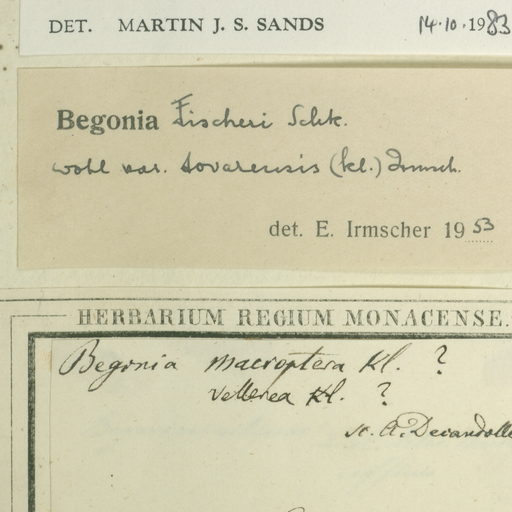 DET. MARTIN J. S. SANDS 14·10·1983
Begonia Fischeri Schk.
wohl var. tovarensis (Kl.) Irmsch.
det. E. Irmscher 1953
HERBARIUM REGIUM MONACENSE.
Begonia macroptera Kl. ?
vellerea Kl. ?
A. Decandolle